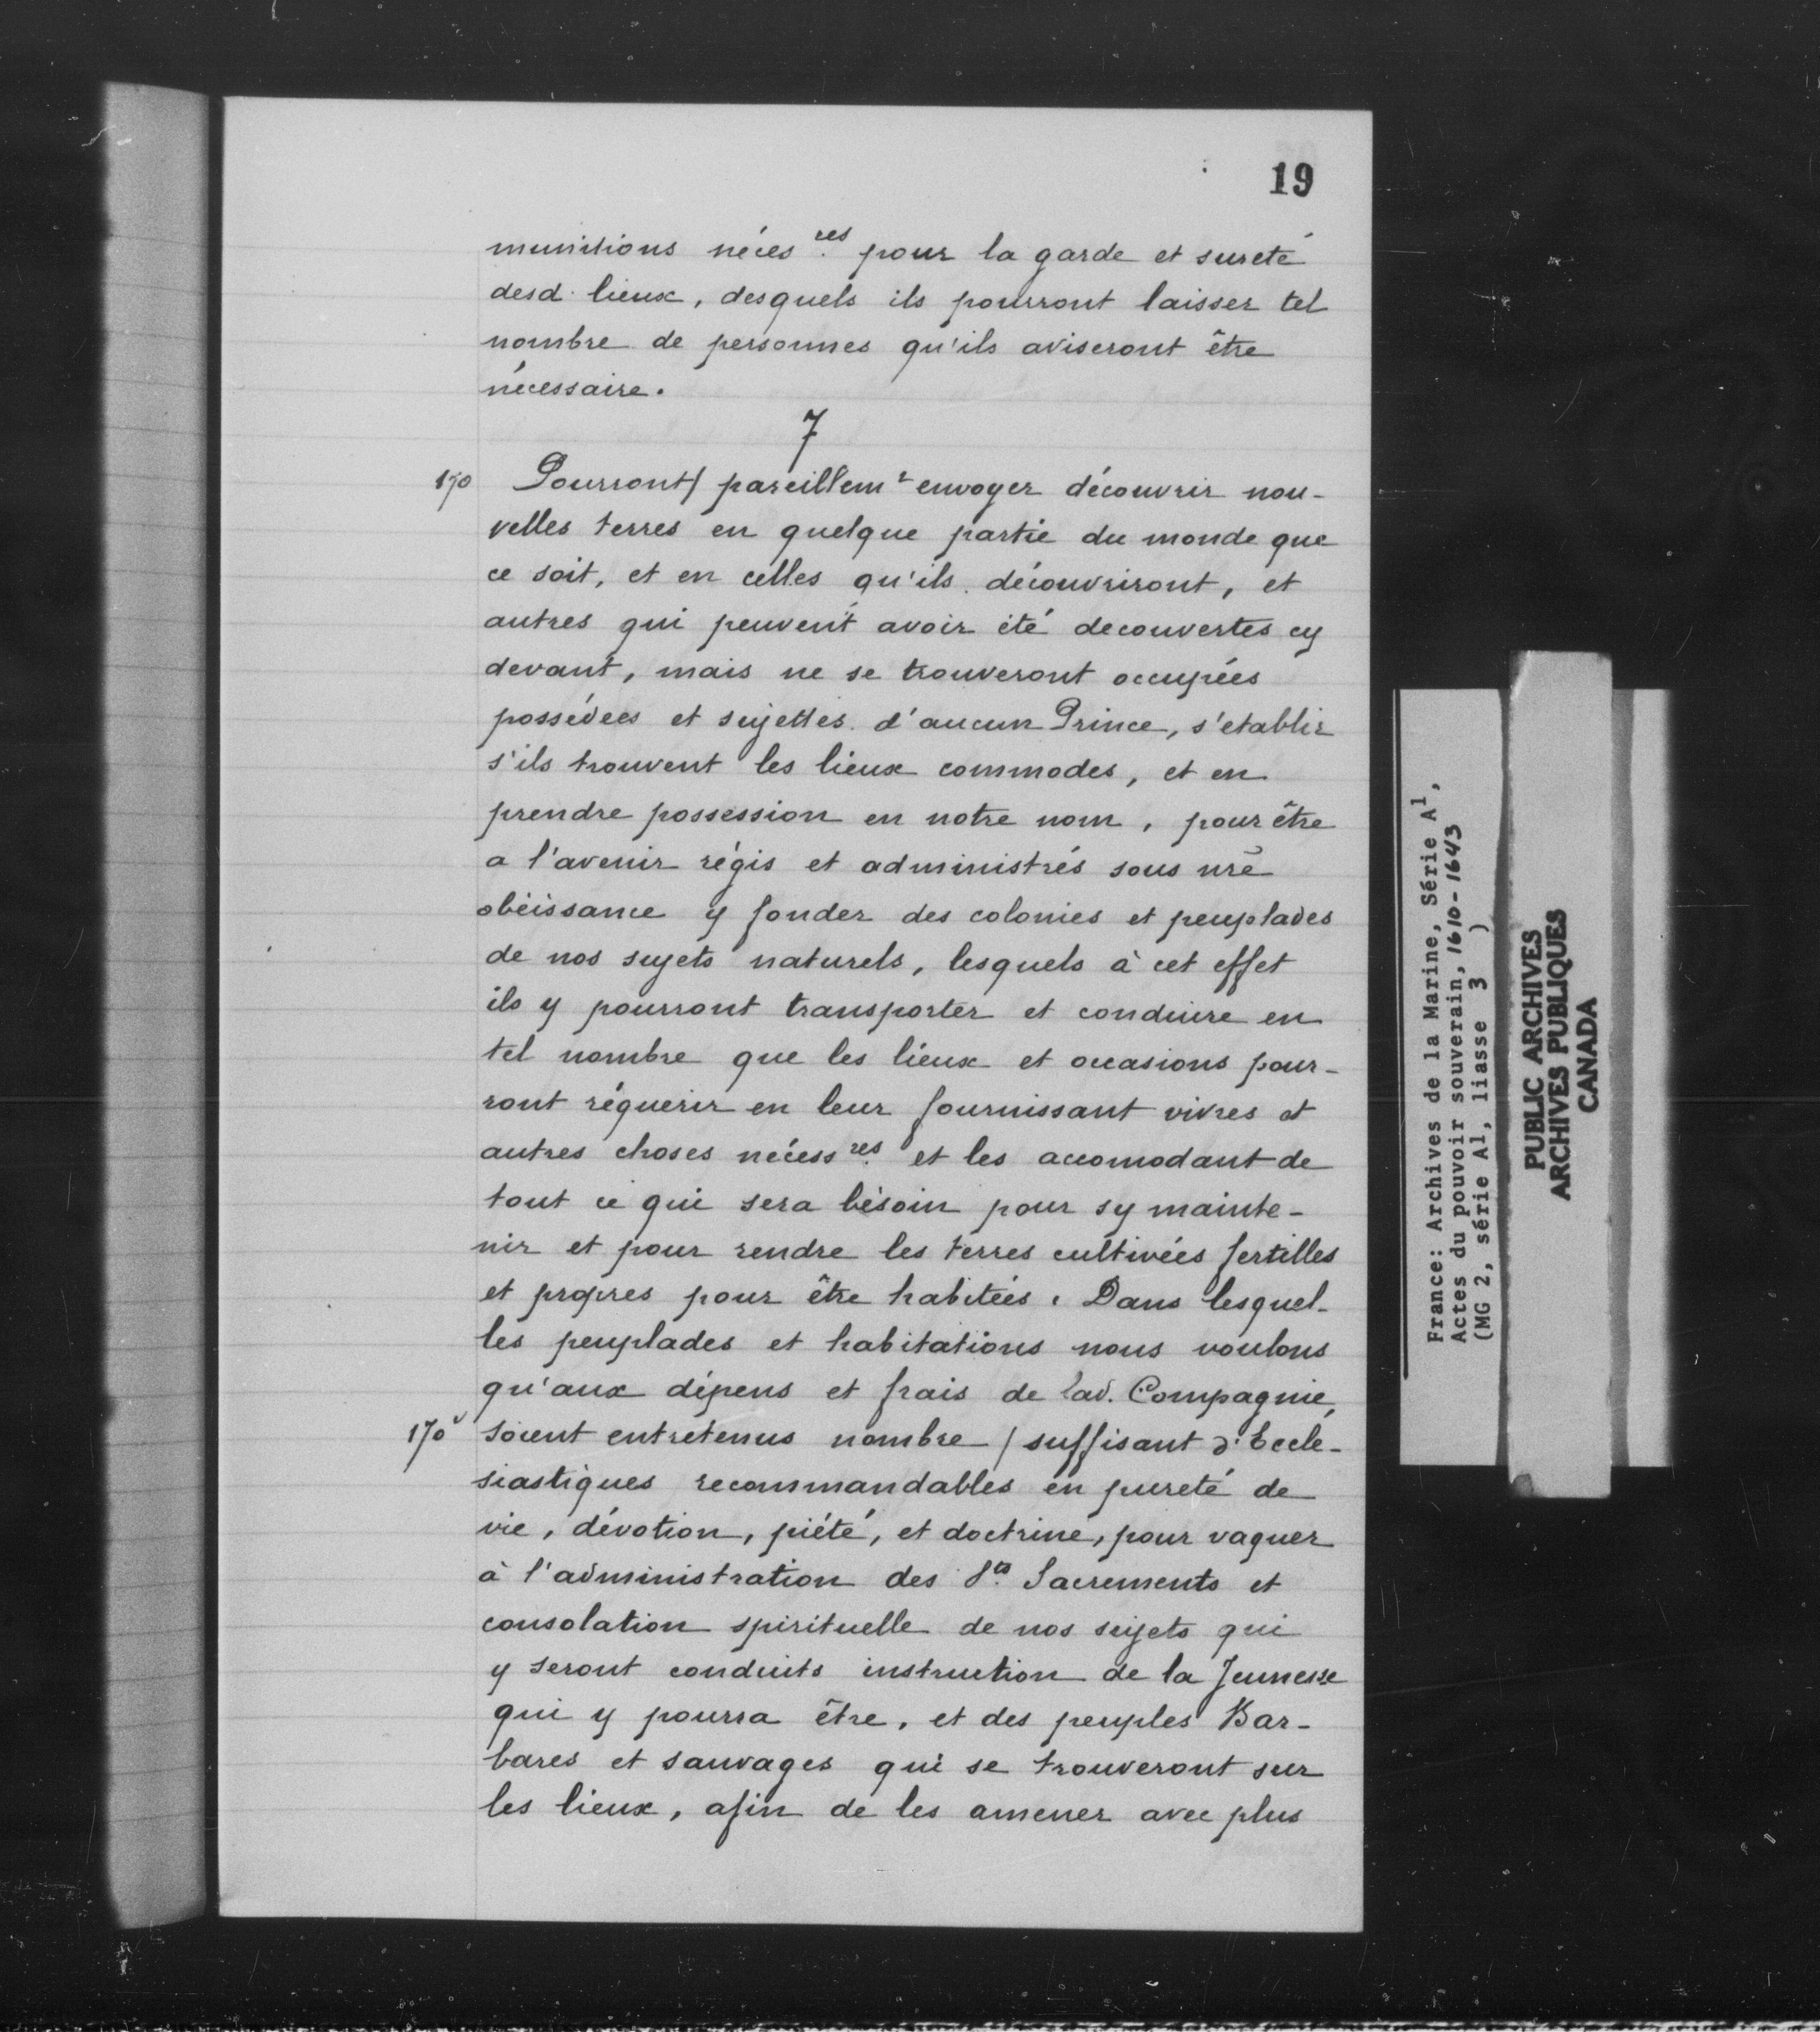 19
munitions néces.res pour la garde et sureté
desd. lieux, desquels ils pourront laisser tel
nombre de personnes qu'ils aviseront être
nécessaire.
7
170 Pourront/ pareillemt envoyer découvrir nou-
velles terres en quelque partie du monde que
ce soit, et en celles qu'ils découvriront, et
autres qui peuvent avoir été decouvertes cy
devant, mais ne se trouveront occupées
possédees et sujettes d'aucun Prince, s'etablir
s'ils trouvent les lieux commodes, et en
prendre possession en notre nom, pour être
a l'avenir régis et administrés sous nrē
obéissance y fonder des colonies et peuplades
de nos sujets naturels, lesquels à cet effet
ils y pourront transporter et conduire en
tel nombre que les lieux et occasions pour-
ront réquerir en leur fournissant vivres et
autres choses nécess.res et les accomodant de
tout ce qui sera bésoin pour sy mainte-
nir et pour rendre les terres cultivées fertilles
et propres pour être habitées. Dans lesquel-
les peuplades et habitations nous voulons
qu'aux dépens et frais de lad. Compagnie,
170v soient entretenus nombre / suffisant d'Eccle-
siastiques recommandables en pureté de
vie, dévotion, piété, et doctrine, pour vaquer
à l'administration des S.ts Sacrements et
consolation spirituelle de nos sujets qui
y seront conduits instruction de la Jeunesse
qui y pourra être, et des peuples Bar-
bares et sauvages qui se trouveront sur
les lieux, afin de les amener avec plus
France: Archives de la Marine, Série A1,
Actes du pouvoir souverain, 1610-1643
(MG 2, série A1, liasse 3 )
PUBLIC ARCHIVES
ARCHIVES PUBLIQUES
CANADA